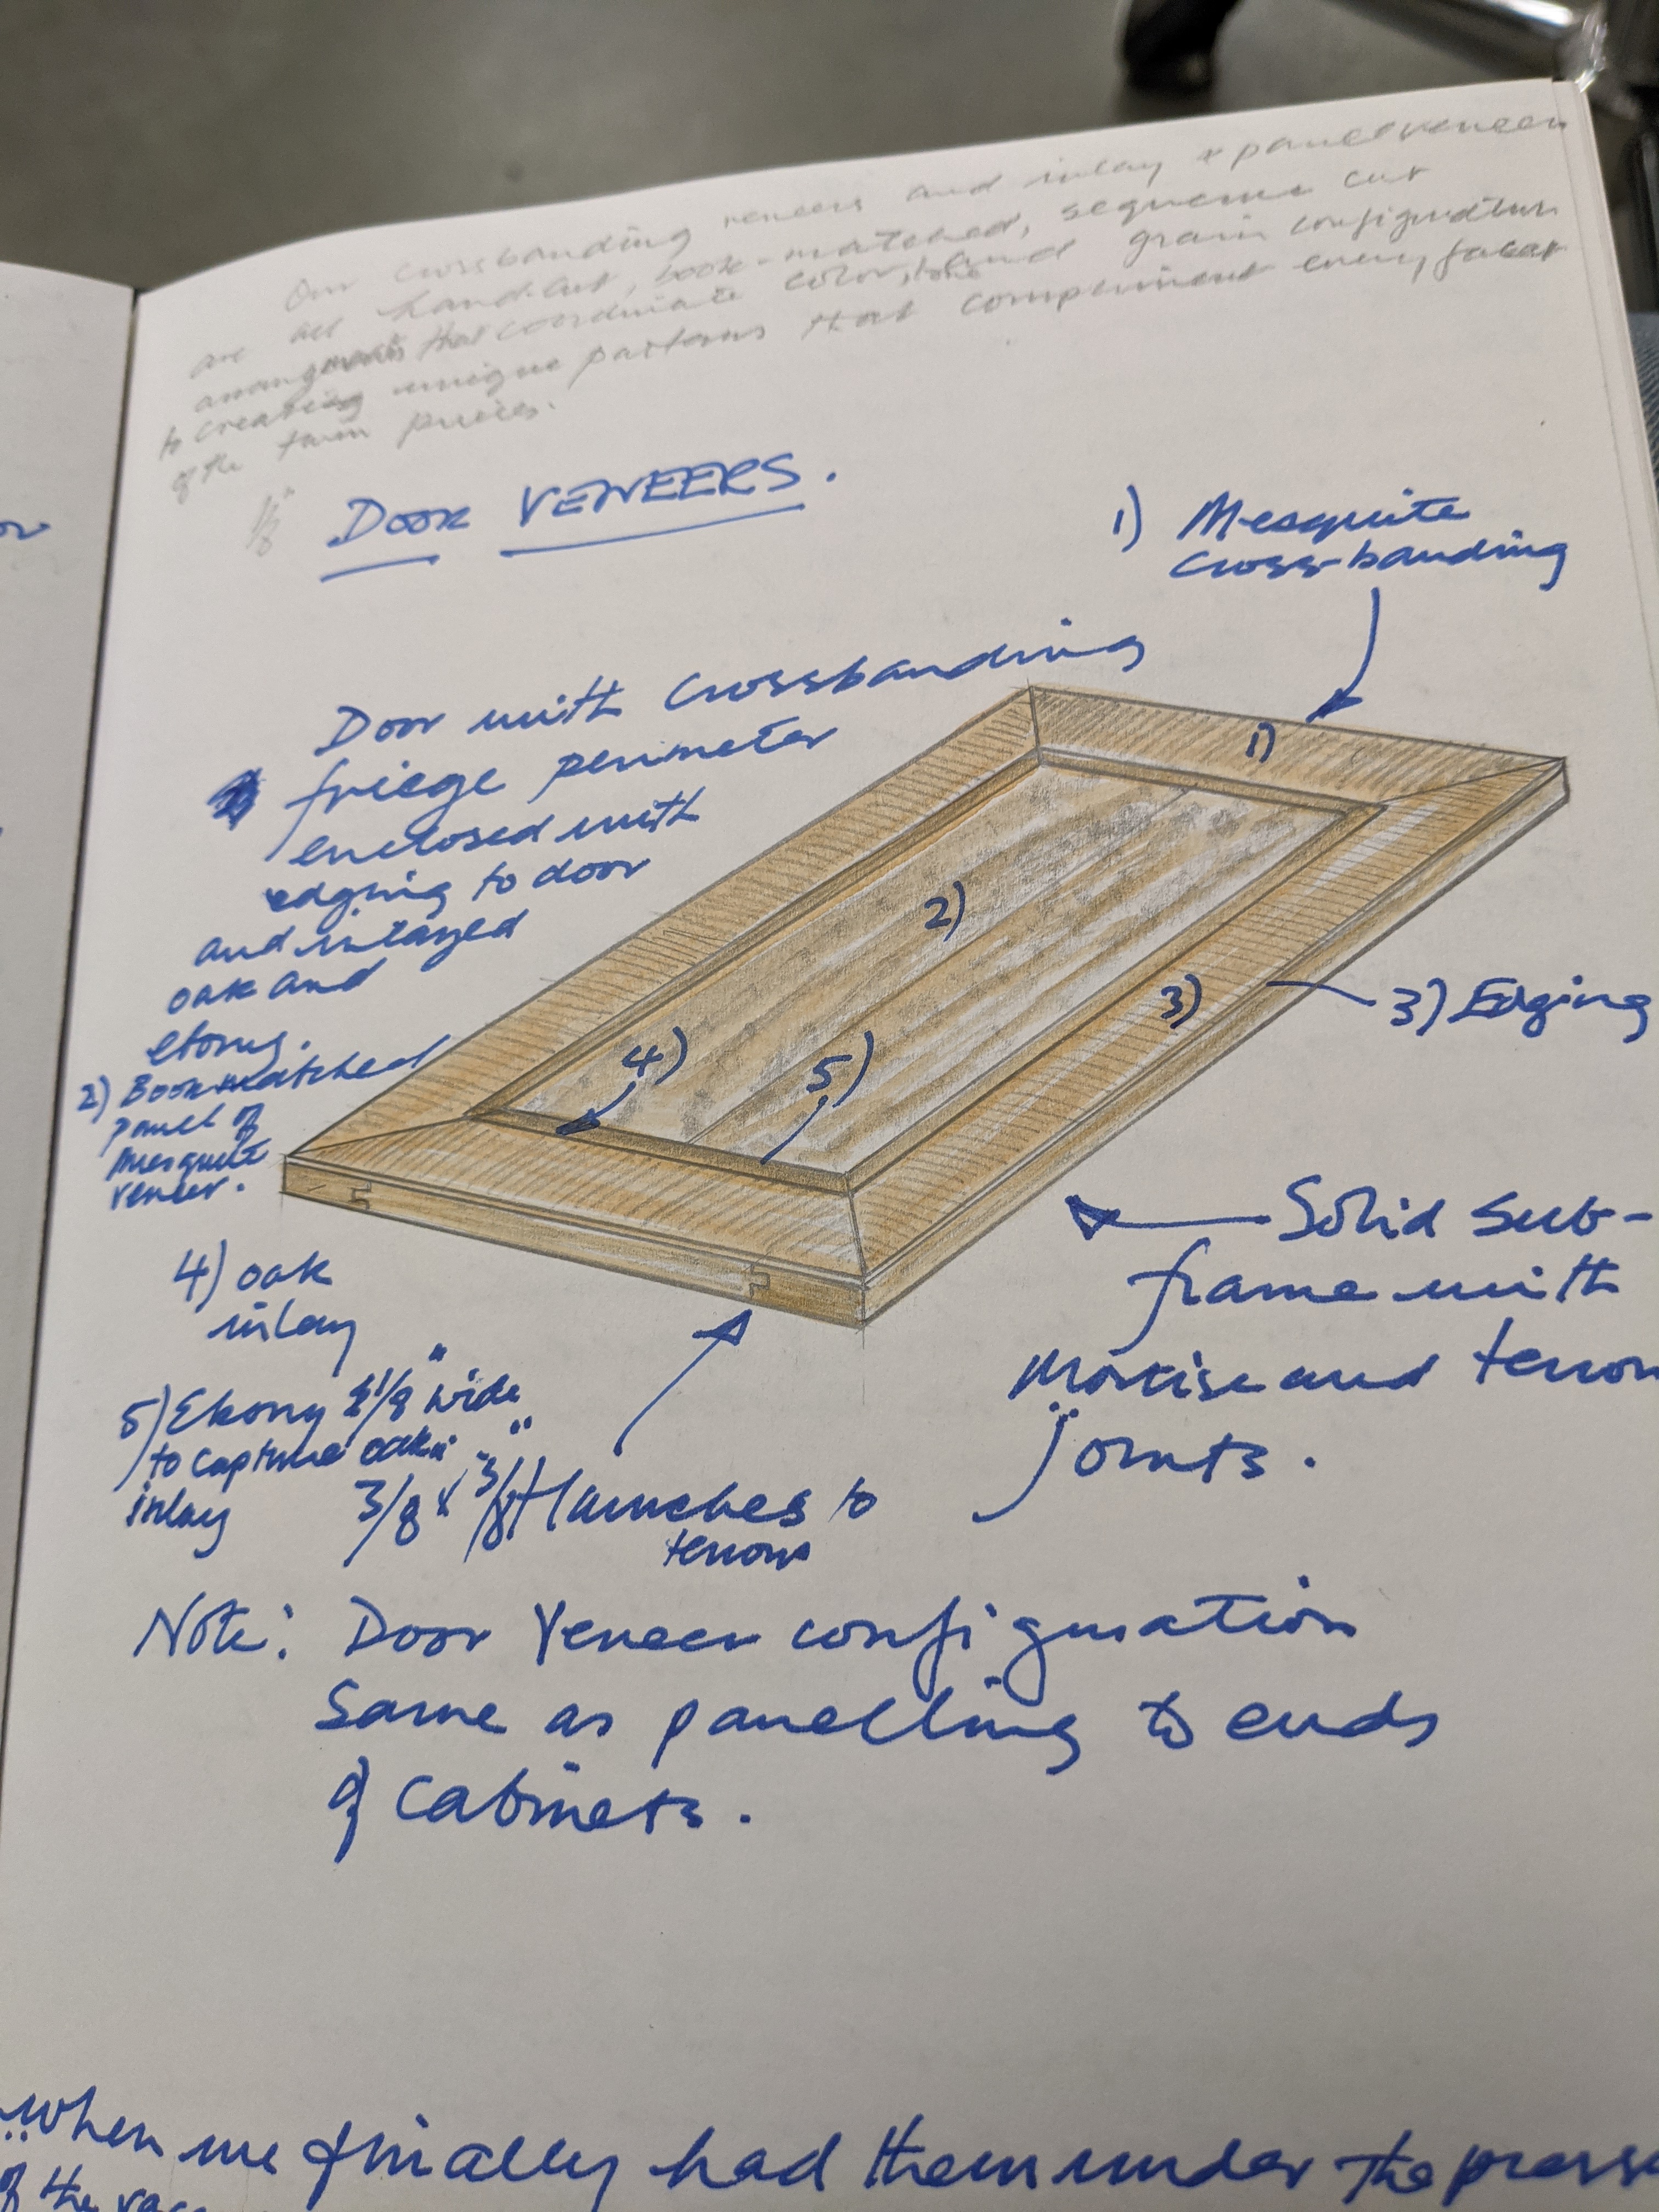 Our crossbanding veneers and inlay & panel veneers
are all hand-cut, book-matched, sequence cut
arrangments that coordinate color, and grain configuration
to creating unique patterns that compliment every facet
of the twin pieces.
Door VENEERS.
1) Mesquite
cross-banding
Door with Crossbanding
friege perimeter
enclosed with
edging to door
and inlayed
oak and
ebony.
1)
2)
3)
4)
5)
3) Edging
2) Bookmatched
panel of
Mesquite
veneer.
4) oak
inlay
5) Ebony 1/8" wide
to capture oak
inlay
3/8" x 3/8" Haunches to
tenons
Solid Sub-
frame with
Mortise and tenon
joints.
Note: Door Veneer configuration
Same as panelling to ends
of cabinets.
..when we finally had them under the press
of the